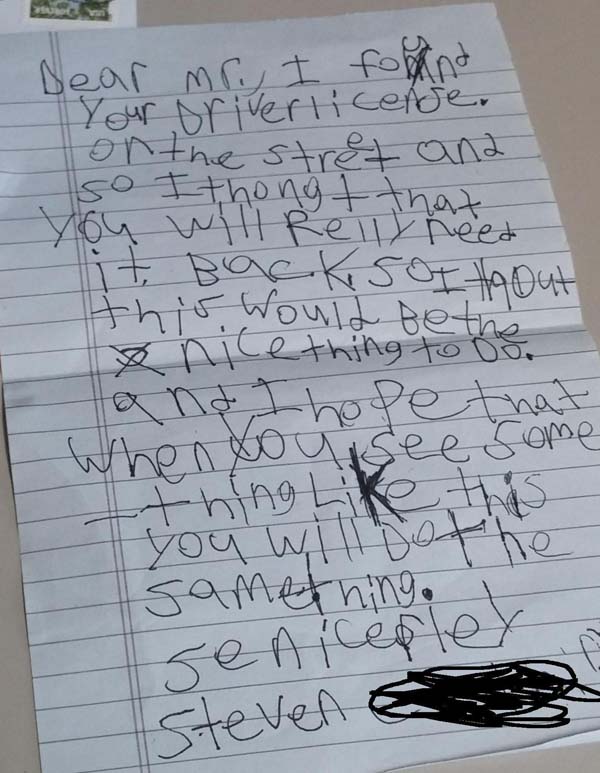 Dear mr., I found
Your Driverlicense.
on the street and
so I thongt that
you will Really need
it. Back. so I thout
this would Be the
nice thing to Do.
and I hope that
when you see some
-thing Like this
you will Do the
same thing.
senicerley
Steven